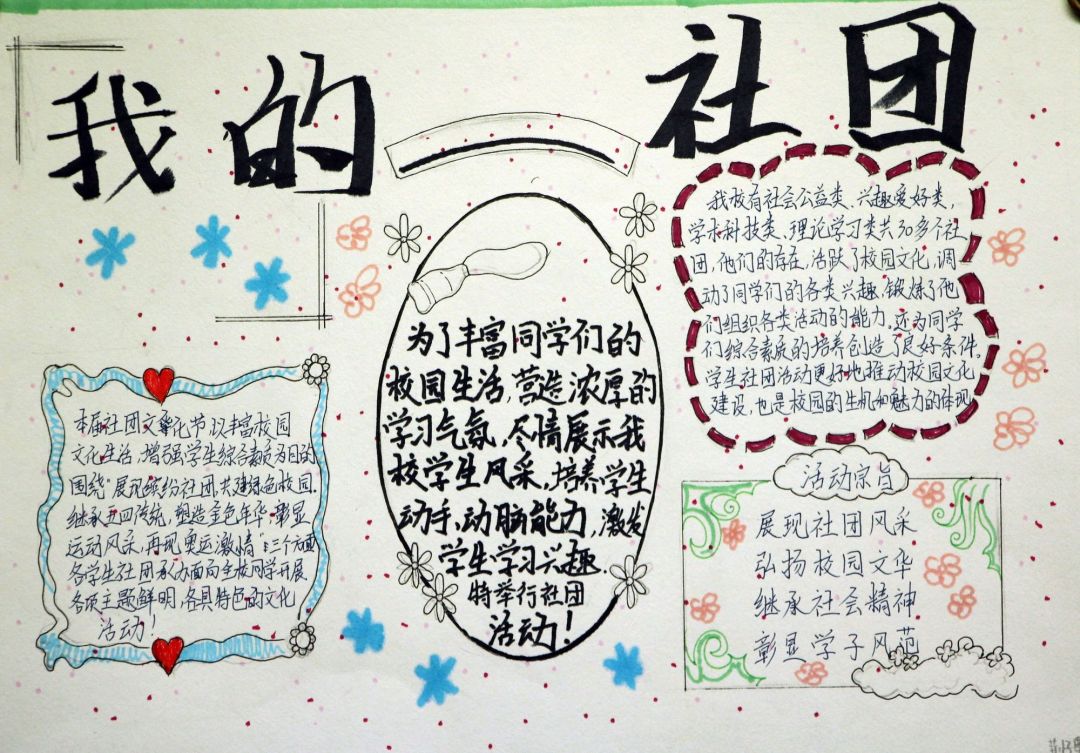 我的社团
本届社团文化节以丰富校园
文化生活,增强学生综合素质为目的
围绕“展现缤纷社团,共建绿色校园.
继承五四传统,塑造金色年华.彰显
运动风采,再现奥运激情”三个方面
各学生社团承办面向全校同学开展
各项主题鲜明,各具特色的文化
活动!
为了丰富同学们的
校园生活,营造浓厚的
学习气氛.尽情展示我
校学生风采.培养学生
动手、动脑能力,激发
学生学习兴趣.
特举行社团
活动!
我校有社会公益类、兴趣爱好类,
学术科技类、理论学习类共30多个社
团,他们的存在,活跃了校园文化,调
动了同学们的各类兴趣.锻炼了他
们组织各类活动的能力.还为同学
们综合素质的培养创造了良好条件.
学生社团活动更好地推动校园文化
建设,也是校园的生机和魅力的体现
活动宗旨
展现社团风采
弘扬校园文华
继承社会精神
彰显学子风范